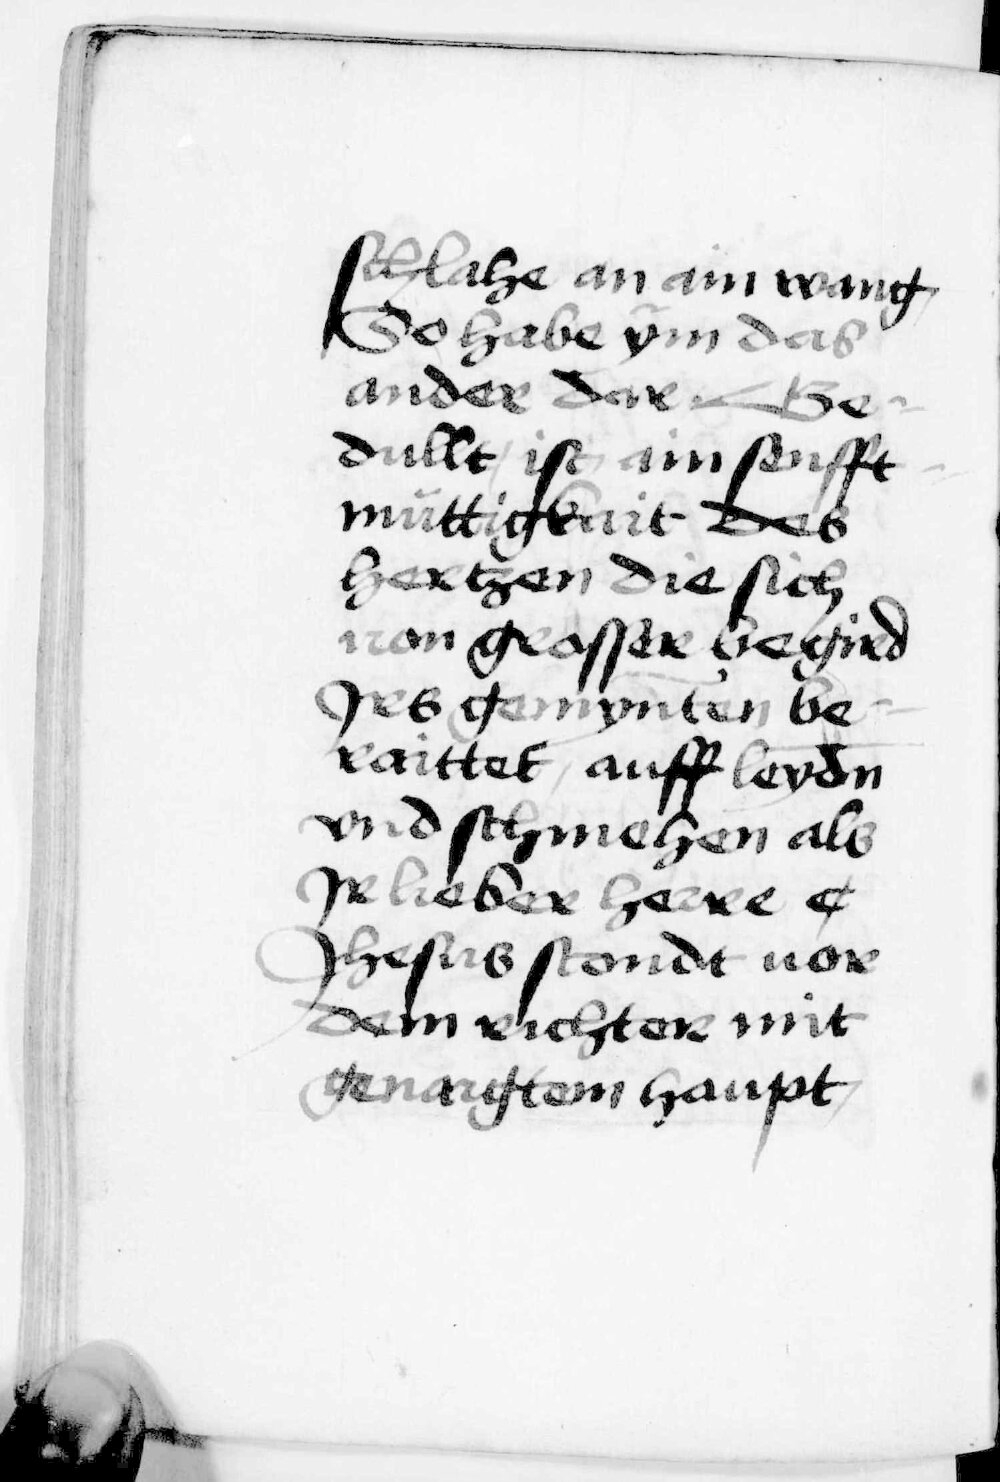 schlahe an ain wang /
So habe ÿm das
ander dar Ge-
dullt / ist ain senfft-
müttigkait des
hertzen die sich
uon grosser begird
Jrs gemynten be-
raittet / auff leydn
vnd schmehen als
Jr lieber herre ¢
Jhesus stondt uor
dem richter mit
genaigtem haupt /